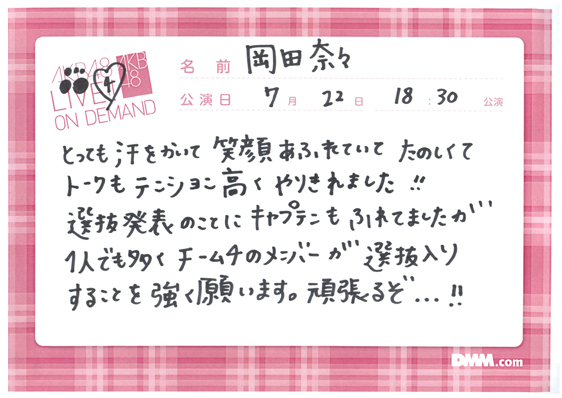 AKB48
LIVE!!
ON DEMAND
AKB
48
4
名前 岡田奈々
公演日 7月 22日 18:30 公演
とっても汗をかいて 笑顔あふれていて たのしくて
トークもテンション高く やりきれました!!
選抜発表のことにキャプテンもふれてましたが
1人でも多くチーム4のメンバーが選抜入り
することを強く願います。頑張るぞ...!!
DMM.com